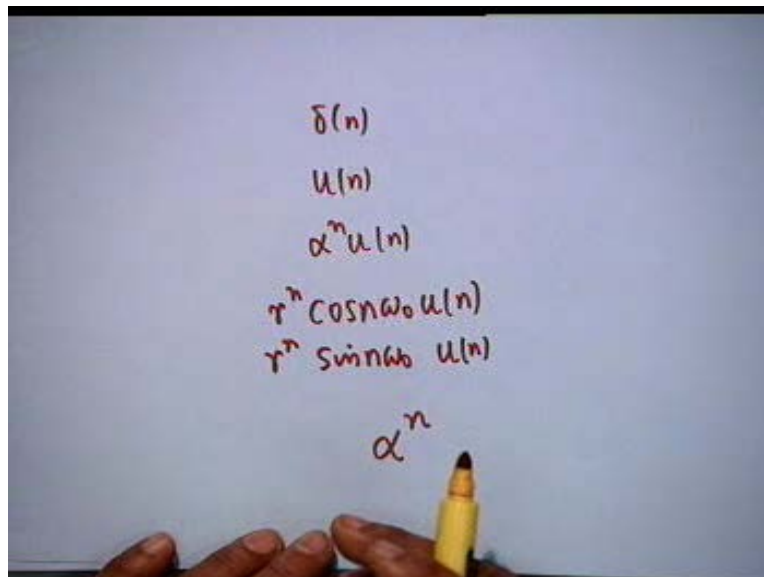 δ(n)
u(n)
αⁿu(n)
rⁿ cosnω₀ u(n)
rⁿ sinnω₀ u(n)
αⁿ